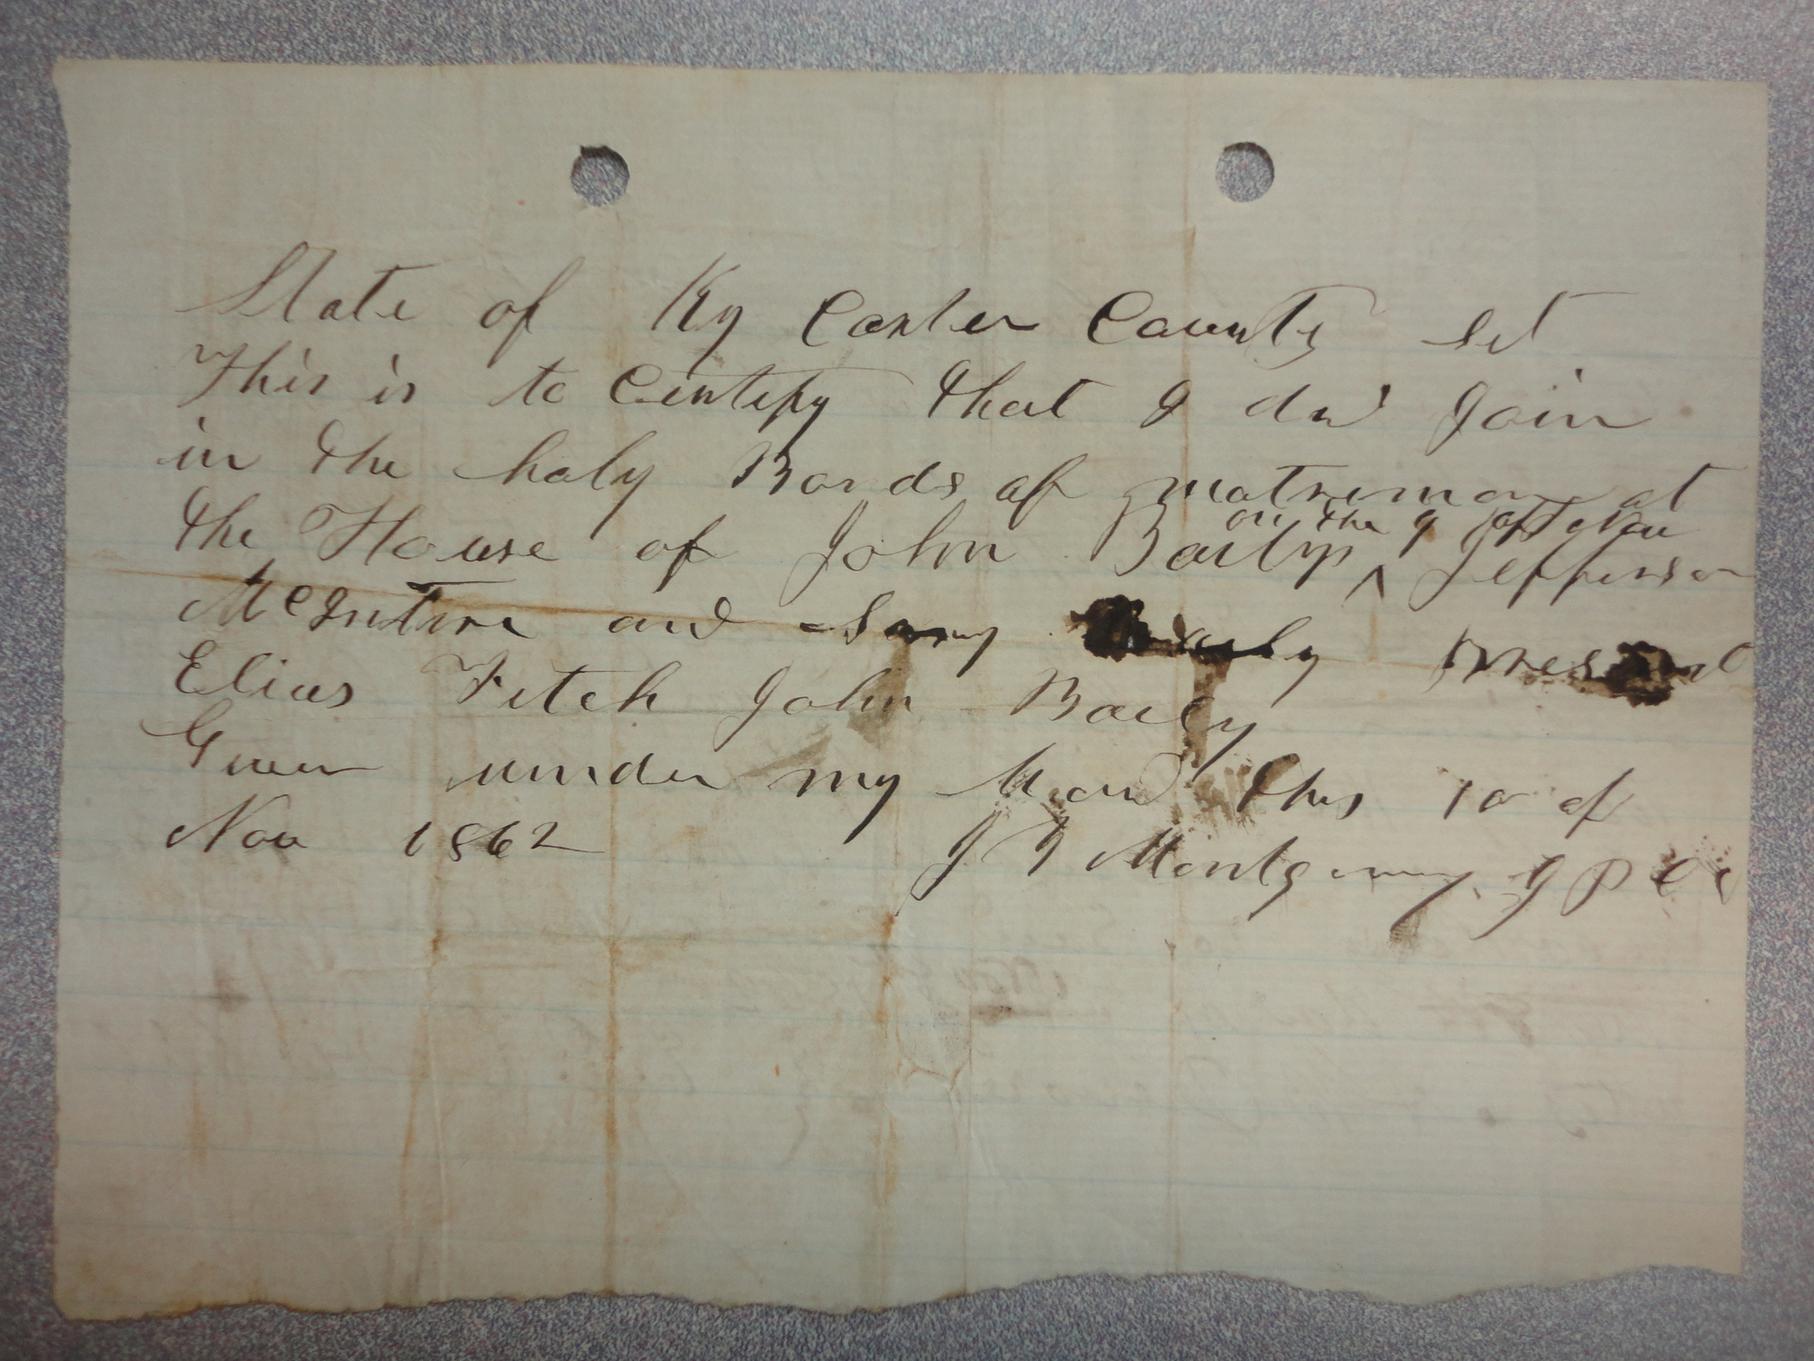 State of Ky Carter County Sct
This is to Certify that I did Join
in the holy Bonds of matrimony at
on the 9 of Nov
the House of John Bailys ^ Jefferson
McIntire and Sary Baily present
Elias Fitch John Baily
Given under my Hand this 10 of
Nov 1862 J Montgomery J P C C